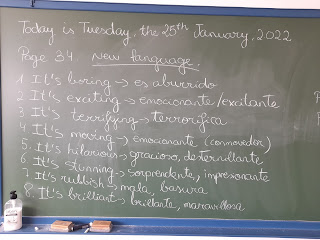 Today is Tuesday, the 25th January, 2022
Page 34 New language.
1 It's boring → es aburrido
2 It's exciting → emocionante/excitante
3 It's terrifying → terrorífica
4 It's moving → emocionante (conmovedor)
5. It's hilarious → gracioso, desternillante
6 It's stunning → sorprendente, impresionante
7 It's rubbish → mala, basura
8. It's brilliant → brillante, maravillosa